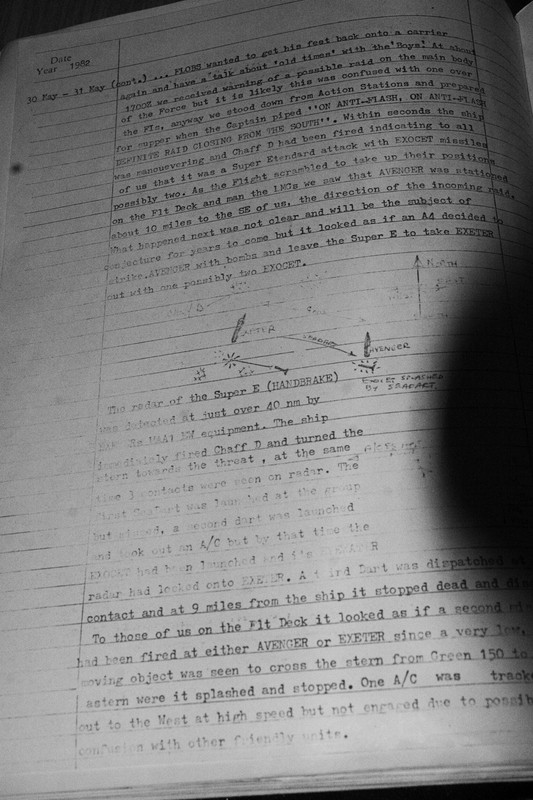 Date
Year 1982
30 May - 31 May (cont.) ... FLOBS wanted to get his feet back onto a carrier
again and have a talk about 'old times' with the 'Boys'. At about
1700Z we received warning of a possible raid on the main body
of the Force but it is likely this was confused with one over
the FIs, anyway we stood down from Action Stations and prepared
for supper when the Captain piped "ON ANTI-FLASH, ON ANTI-FLASH
DEFINITE RAID CLOSING FROM THE SOUTH". Within seconds the ship
was manouevering and Chaff D had been fired indicating to all
of us that it was a Super Etendard attack with EXOCET missiles
possibly two. As the Flight scrambled to take up their positions
on the Flt Deck and man the LMGs we saw that AVENGER was stationed
about 10 miles to the SE of us, the direction of the incoming raid.
What happened next was not clear and will be the subject of
conjecture for years to come but it looked as if an A4 decided to
strike AVENGER with bombs and leave the Super E to take EXETER
out with one possibly two EXOCET.
NORTH
EXETER
AVENGER
SPLASHED
BY SEADART.
The radar of the Super E (HANDBRAKE)
was detected at just over 40 nm by
equipment. The ship
immediately fired Chaff D and turned the
stern towards the threat, at the same
time 3 contacts were seen on radar. The
first SeaDart was launched at the group
but missed, a second dart was launched
and took out an A/C but by that time the
EXOCET had been launched and it's
radar had locked onto EXETER. A Dart was dispatched
contact and at 9 miles from the ship it stopped dead and
To those of us on the Flt Deck it looked as if a second
had been fired at either AVENGER or EXETER since a very low,
moving object was seen to cross the stern from Green 150 to
astern were it splashed and stopped. One A/C was
out to the West at high speed but not engaged due to
confusion with other friendly units.